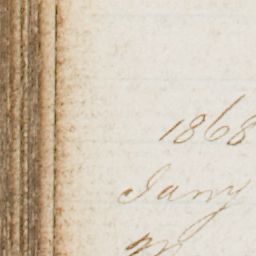 1868
Jany